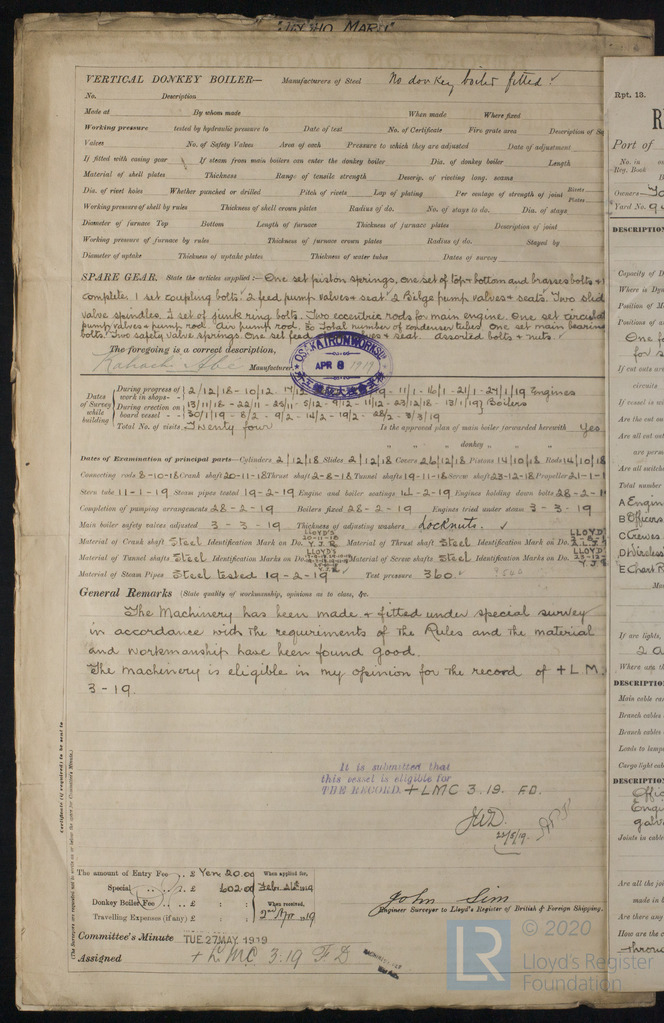 VERTICAL DONKEY BOILER— Manufacturers of Steel No donkey boiler fitted.
No. Description
Made at By whom made When made Where fixed
Working pressure tested by hydraulic pressure to Date of test No. of Certificate Fire grate area Description of
Valves No. of Safety Valves Area of each Pressure to which they are adjusted Date of adjustment
If fitted with easing gear If steam from main boilers can enter the donkey boiler Dia. of donkey boiler Length
Material of shell plates Thickness Range of tensile strength Descrip. of riveting long. seams
Dia. of rivet holes Whether punched or drilled Pitch of rivets Lap of plating Per centage of strength of joint Rivets Plates
Working pressure of shell by rules Thickness of shell crown plates Radius of do. No. of stays to do. Dia. of stays
Diameter of furnace Top Bottom Length of furnace Thickness of furnace plates Description of joint
Working pressure of furnace by rules Thickness of furnace crown plates Radius of do. Stayed by
Diameter of uptake Thickness of uptake plates Thickness of water tubes Dates of survey
SPARE GEAR. State the articles supplied:— One set piston springs, one set of top & bottom end brasses bolts &
complete. 1 set coupling bolts. 2 feed pump valves & seat. 2 Bilge pump valves & seats. Two slide
valve spindles. 1 set of junk ring bolts. Two eccentric rods for main engine. One set
pump valves & pump rod. Air pump rod. Total number of condenser tubes. One set main bearing
bolts. Two safety valve springs. One set feed & seat. assorted bolts & nuts.
The foregoing is a correct description,
Manufacturer
OSAKA IRON WORKS
APR 8 1919
Dates of Survey while building
During progress of work in shops - - 2/12/18 - 10/12 - 17/12 - 9 - 11/1 - 16/1 - 21/1 - 24/1/19 Engines
During erection on board vessel - - 13/11/18 - 22/11 - 5/12 - 9/12 - 11/12 - 23/12/18 - 13/1/19 Boilers
30/1/19 - 8/2 - 9/2 - 14/2 - 19/2 - 28/2 - 3/3/19
Total No. of visits Twenty four Is the approved plan of main boiler forwarded herewith Yes
" " " donkey " "
Dates of Examination of principal parts—Cylinders 2/12/18 Slides 2/12/18 Covers 26/12/18 Pistons 14/10/18 Rods 14/10/18
Connecting rods 8-10-18 Crank shaft 20-11-18 Thrust shaft 2-8-18 Tunnel shafts 19-11-18 Screw shaft 23-12-18 Propeller 21-1-1
Stern tube 11-1-19 Steam pipes tested 19-2-19 Engine and boiler seatings 14-2-19 Engines holding down bolts 28-2-1
Completion of pumping arrangements 28-2-19 Boilers fixed 28-2-19 Engines tried under steam 3-3-19
Main boiler safety valves adjusted 3-3-19 Thickness of adjusting washers locknuts.
Material of Crank shaft Steel Identification Mark on Do. LLOYD'S 20-11-18 Y.J.R. Material of Thrust shaft Steel Identification Mark on Do. LLOYD
Material of Tunnel shafts Steel Identification Marks on Do. LLOYD'S Material of Screw shafts Steel Identification Marks on Do. LLOYD
Material of Steam Pipes Steel tested 19-2-19 Test pressure 360
General Remarks (State quality of workmanship, opinions as to class, &c.
The Machinery has been made & fitted under special survey
in accordance with the requirements of the Rules and the material
and workmanship have been found good.
The machinery is eligible in my opinion for the record of + L.M.
3 - 19.
It is submitted that
this vessel is eligible for
THE RECORD. + LMC 3.19. F.D.
22/5/19.
The amount of Entry Fee .. £ Yen 20.00 When applied for,
Special .. .. £ 602.00
Donkey Boiler Fee .. £ : : When received,
Travelling Expenses (if any) £ : : 2nd Apr 1919
John Sim
Engineer Surveyor to Lloyd's Register of British & Foreign Shipping.
Committee's Minute TUE 27 MAY. 1919
Assigned + LMC 3.19 F D
Certificate (if required) to be sent to
Rpt. 13.
Port of
No. in
Reg. Book
Owners
Yard No.
DESCRIPTION
Capacity of
Where is
Position of
If cut outs are
circuits
If vessel is
Are the cut
Are all cut
are per
Are all switch
Total number
A Engin
B Officers
C Crews
D Wireless
E Chart R
If are lights,
Where are
DESCRIPTION
Main cable
Branch cables
Branch cables
Leads to lamps
Cargo light cab
DESCRIPTION
Joints in cable
Are all the joi
made in
Are there any
How are the c
throu
© 2020
LR
Lloyd's Register
Foundation